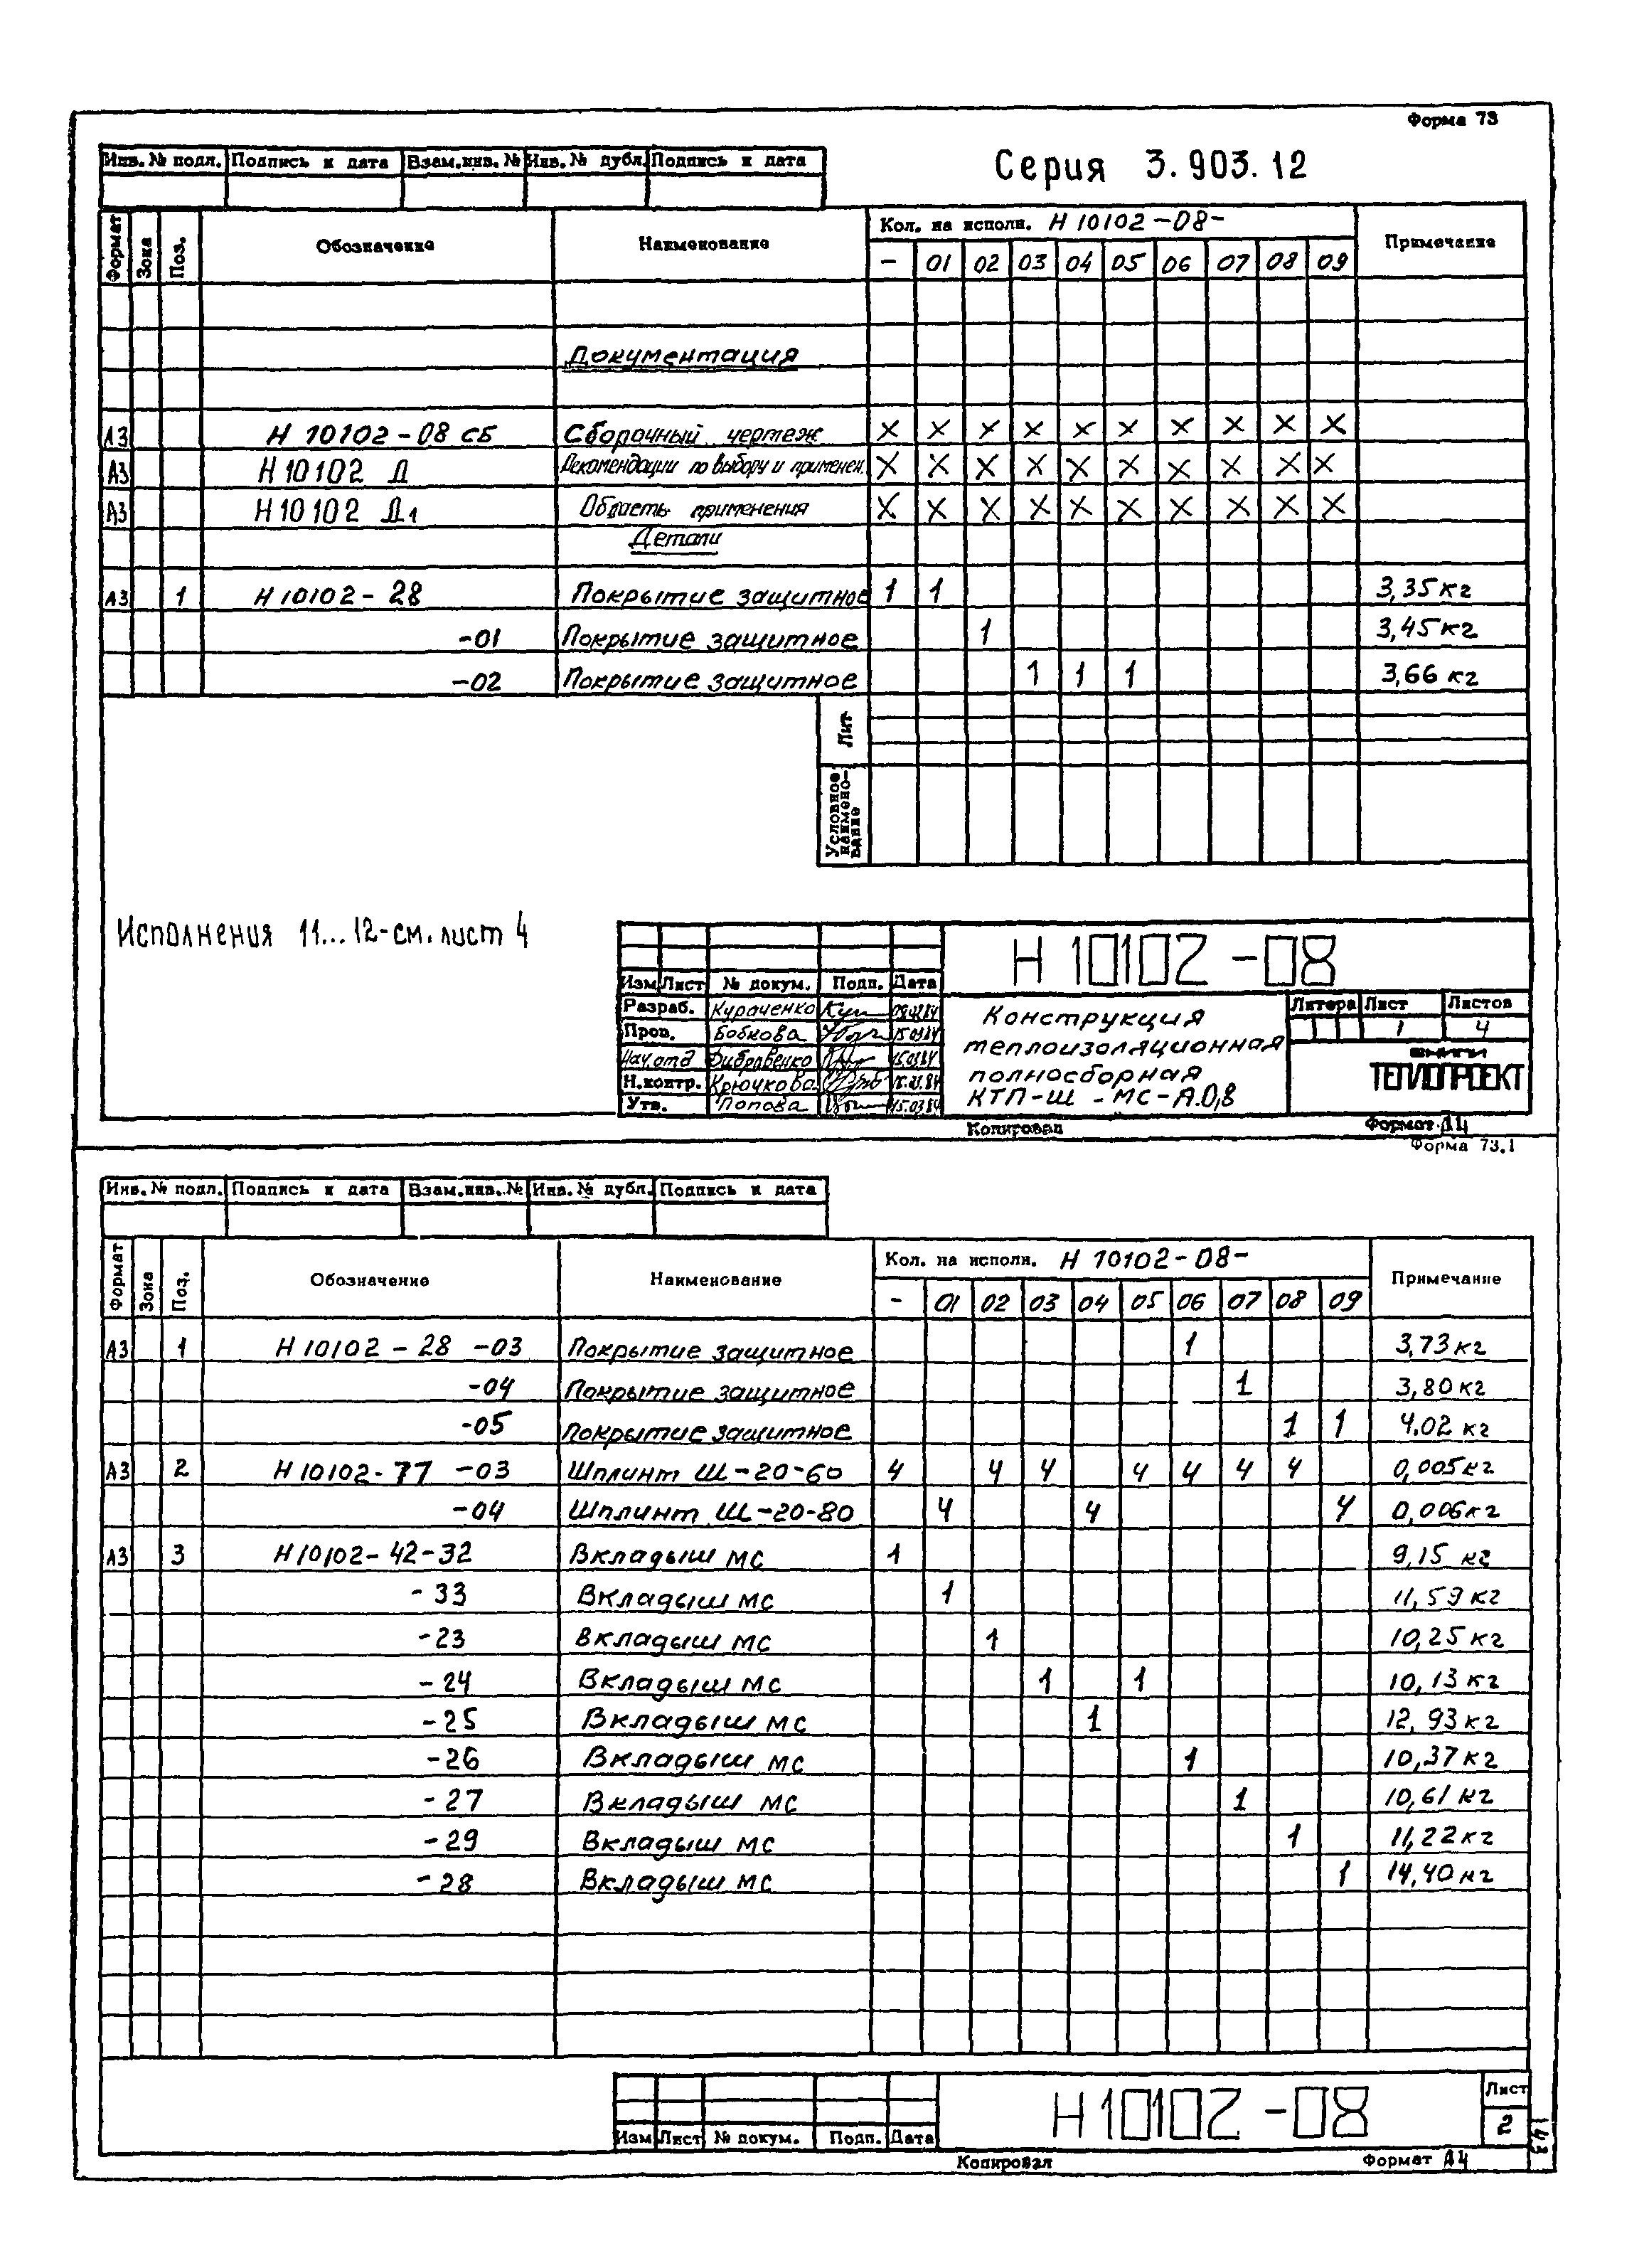 Форма 73
Инв. № подл. Подпись и дата Взам.инв. № Инв. № дубл. Подпись и дата
Серия 3.903.12
Формат Зона Поз. Обозначение Наименование Кол. на исполн. Н 10102-08- Примечание
- 01 02 03 04 05 06 07 08 09
Документация
А3 Н 10102-08 СБ Сборочный чертеж X X X X X X X X X X
А3 Н 10102 Д Рекомендации по выбору и применен. X X X X X X X X X X
А3 Н 10102 Д1 Область применения X X X X X X X X X X
Детали
А3 1 Н 10102-28 Покрытие защитное 1 1 3,35 кг
-01 Покрытие защитное 1 3,45 кг
-02 Покрытие защитное 1 1 1 3,66 кг
Лит
Условное наимено-вание
Исполнения 11...12-см. лист 4
Н 10102-08
Изм Лист № докум. Подп. Дата
Разраб. Кураченко
Пров. Бобкова 15.03.84
Нач.отд 15.03.84
Н.контр. Крючкова
Утв. Попова 15.03.84
Конструкция
теплоизоляционная
полносборная
КТП-Ш-МС-А.0,8
Литера Лист Листов
1 4
ВНИПИ
ТЕПЛОПРОЕКТ
Копировал Формат А4
Форма 73.1
Инв. № подл. Подпись и дата Взам.инв. № Инв. № дубл. Подпись и дата
Формат Зона Поз. Обозначение Наименование Кол. на исполн. Н 10102-08- Примечание
- 01 02 03 04 05 06 07 08 09
А3 1 Н 10102-28 -03 Покрытие защитное 1 3,73 кг
-04 Покрытие защитное 1 3,80 кг
-05 Покрытие защитное 1 1 4.02 кг
А3 2 Н 10102-77 -03 Шплинт Ш-20-60 4 4 4 4 4 4 4 0,005 кг
-04 Шплинт Ш-20-80 4 4 4 0,006 кг
А3 3 Н 10102-42-32 Вкладыш МС 1 9,15 кг
-33 Вкладыш МС 1 11,59 кг
-23 Вкладыш МС 1 10,25 кг
-24 Вкладыш МС 1 1 10,13 кг
-25 Вкладыш МС 1 12,93 кг
-26 Вкладыш МС 1 10,37 кг
-27 Вкладыш МС 1 10,61 кг
-29 Вкладыш МС 1 11,22 кг
-28 Вкладыш МС 1 14,40 кг
Изм Лист № докум. Подп. Дата
Н 10102-08
Лист
2
143
Копировал Формат А4